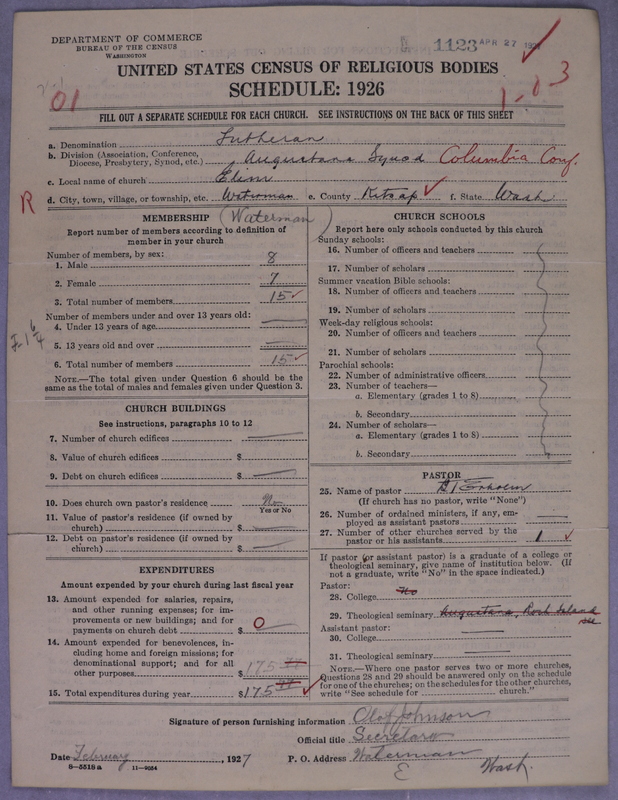 DEPARTMENT OF COMMERCE
BUREAU OF THE CENSUS
WASHINGTON
1123 APR 27
UNITED STATES CENSUS OF RELIGIOUS BODIES
SCHEDULE: 1926
01
1-03
FILL OUT A SEPARATE SCHEDULE FOR EACH CHURCH. SEE INSTRUCTIONS ON THE BACK OF THIS SHEET
a. Denomination Lutheran
b. Division (Association, Conference, Diocese, Presbytery, Synod, etc.) Augustana Synod Columbia Conf.
c. Local name of church Elim
R
d. City, town, village, or township, etc. Waterman e. County Kitsap f. State Wash
(Waterman)
MEMBERSHIP
Report number of members according to definition of
member in your church
Number of members, by sex:
1. Male 8
2. Female 7
3. Total number of members 15
Number of members under and over 13 years old:
4. Under 13 years of age
5. 13 years old and over
6. Total number of members 15
NOTE.—The total given under Question 6 should be
same as the total of males and females given under Question 3.
CHURCH BUILDINGS
See instructions, paragraphs 10 to 12
7. Number of church edifices
8. Value of church edifices $
9. Debt on church edifices $
10. Does church own pastor's residence No
Yes or No
11. Value of pastor's residence (if owned by
church) $
12. Debt on pastor's residence (if owned by
church) $
EXPENDITURES
Amount expended by your church during last fiscal year
13. Amount expended for salaries, repairs,
and other running expenses; for im-
provements or new buildings; and for
payments on church debt $ 0
14. Amount expended for benevolences, in-
cluding home and foreign missions; for
denominational support; and for all
other purposes $ 175
15. Total expenditures during year $ 175
CHURCH SCHOOLS
Report here only schools conducted by this church
Sunday schools:
16. Number of officers and teachers
17. Number of scholars
Summer vacation Bible schools:
18. Number of officers and teachers
19. Number of scholars
Week-day religious schools:
20. Number of officers and teachers
21. Number of scholars
Parochial schools:
22. Number of administrative officers
23. Number of teachers—
a. Elementary (grades 1 to 8)
b. Secondary
24. Number of scholars—
a. Elementary (grades 1 to 8)
b. Secondary
PASTOR
25. Name of pastor
(If church has no pastor, write "None")
26. Number of ordained ministers, if any, em-
ployed as assistant pastors
27. Number of other churches served by the
pastor or his assistants 1
If pastor (or assistant pastor) is a graduate of a college or
theological seminary, give name of institution below. (If
not a graduate, write "No" in the space indicated.)
Pastor:
28. College No
29. Theological seminary Augustana, Rock Island
Ill
Assistant pastor:
30. College
31. Theological seminary
NOTE.—Where one pastor serves two or more churches,
Questions 28 and 29 should be answered only on the schedule
for one of the churches; on the schedules for the other churches,
write "See schedule for church."
Signature of person furnishing information Olof Johnson
Official title Secretary
Date February, 1927 P. O. Address Waterman
8—5518 a 11—9264
E Wash.